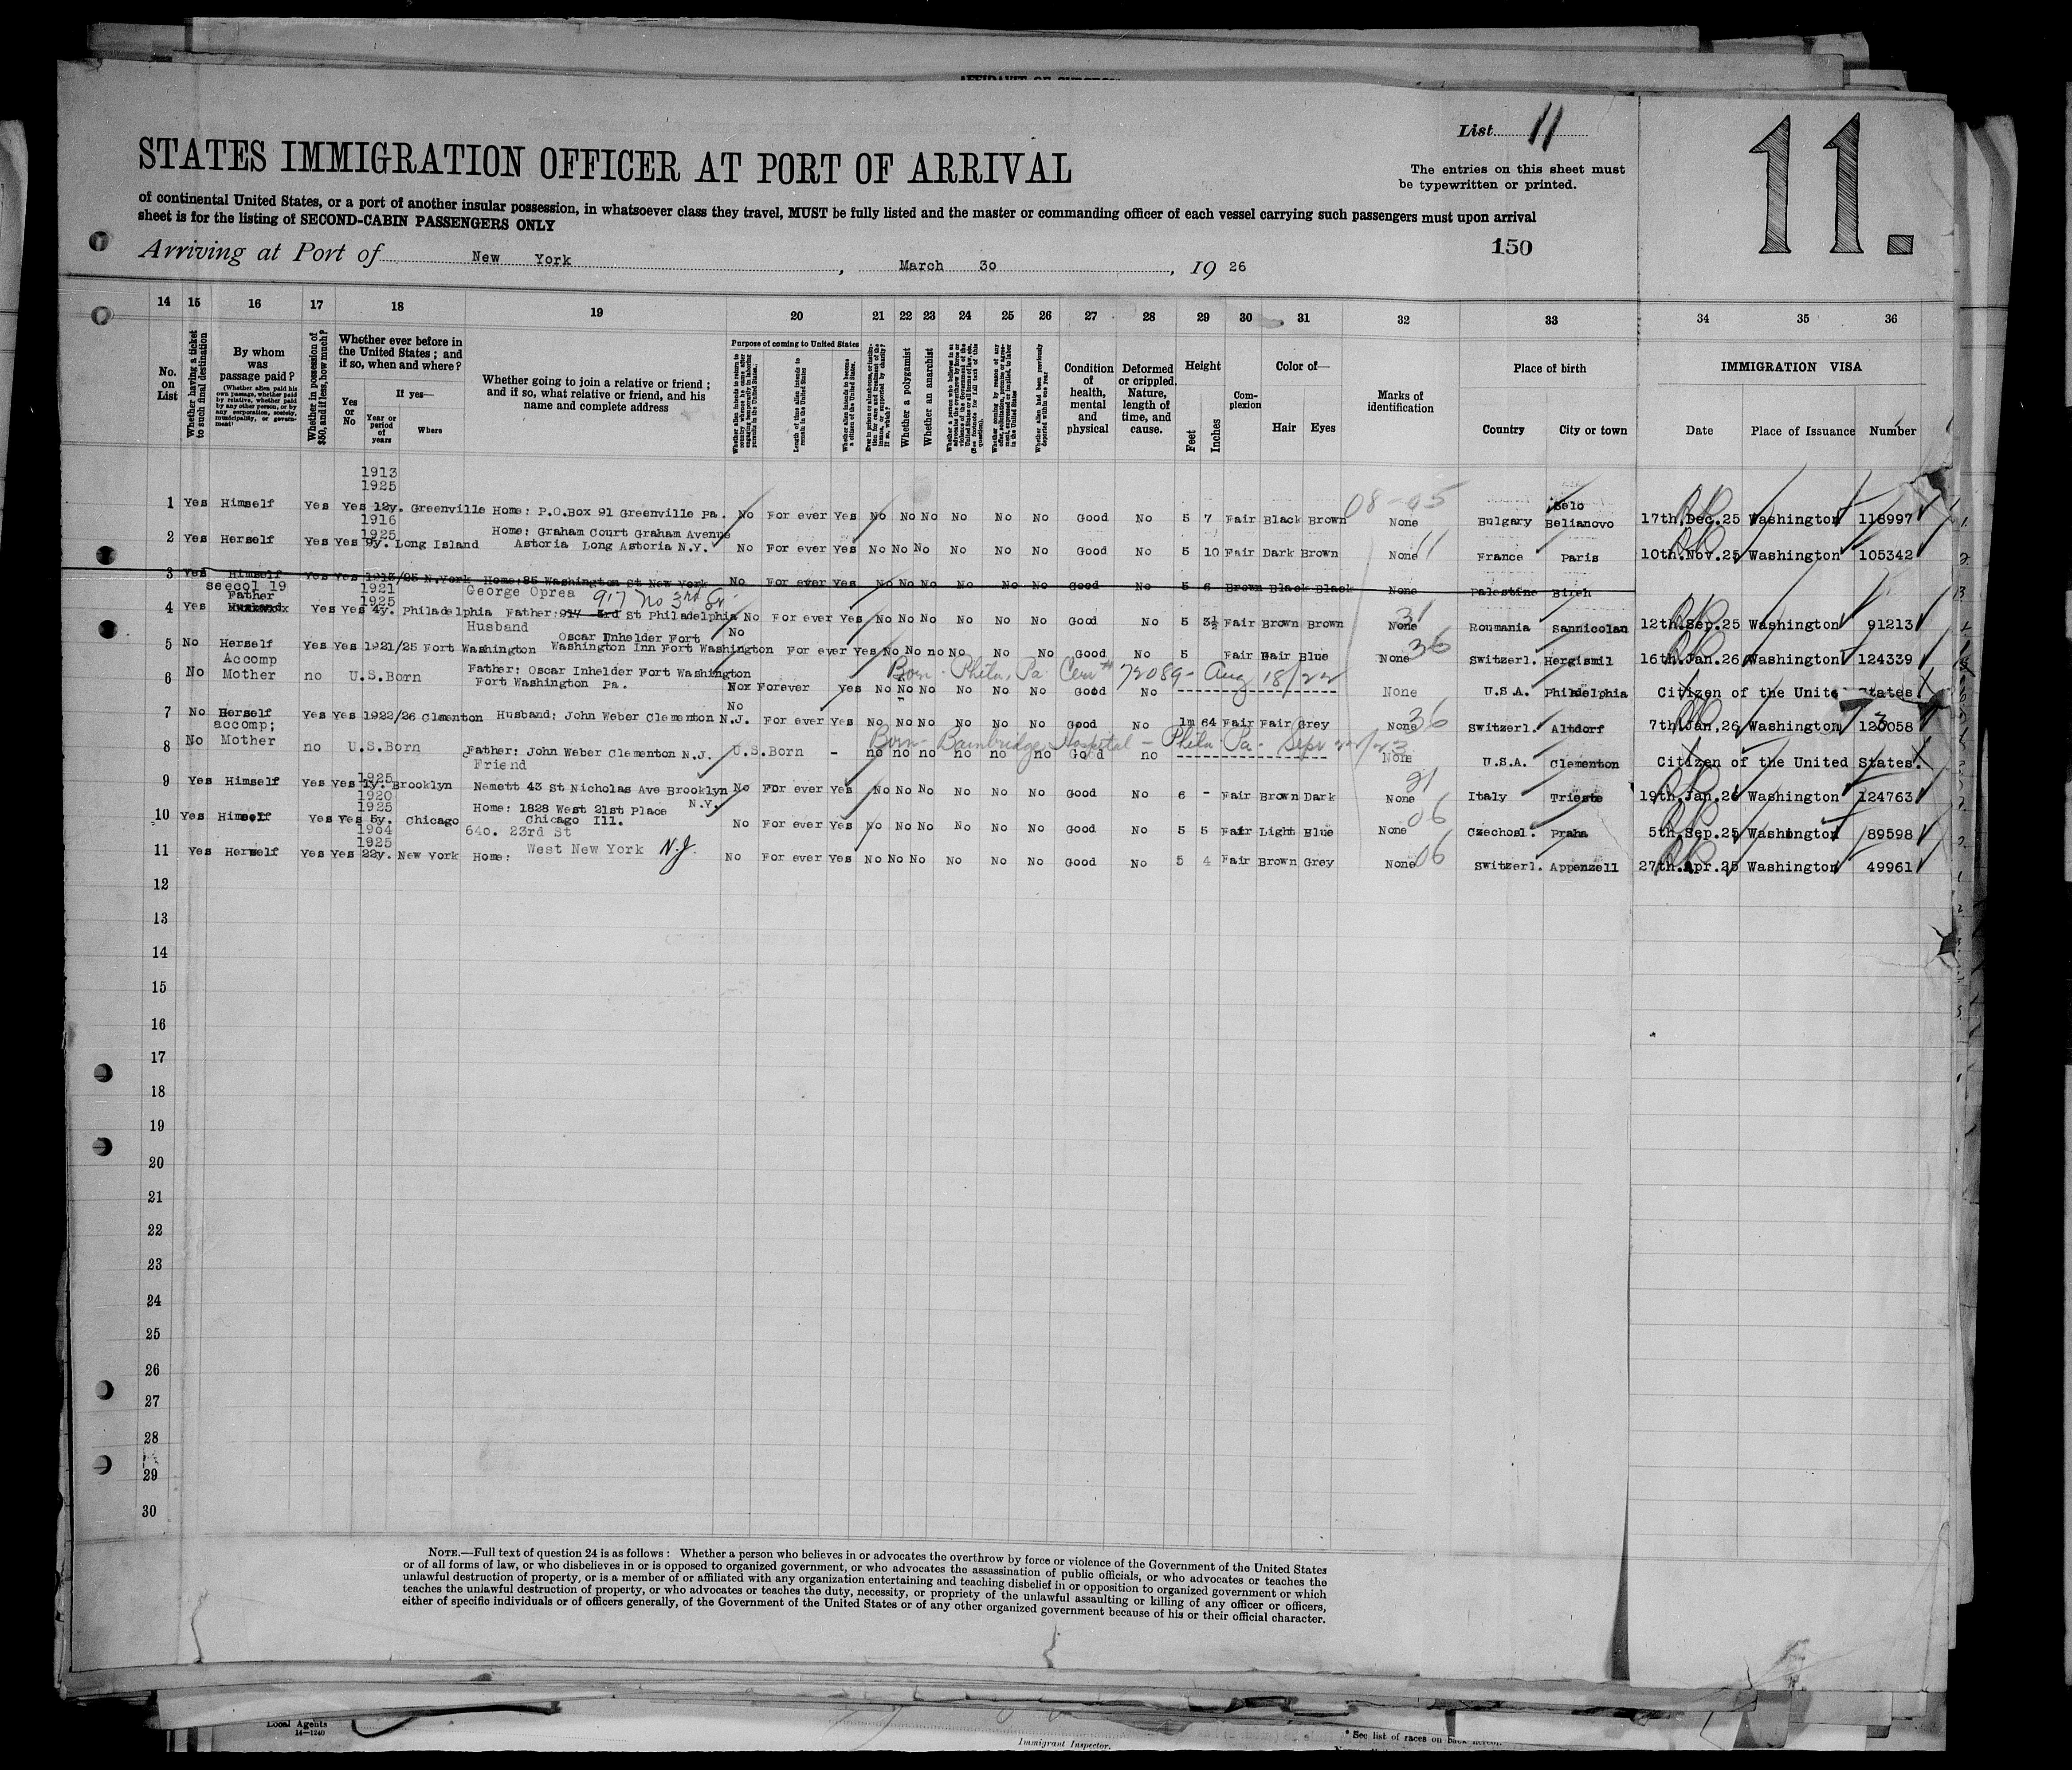 AFFIDAVIT OF SURGEON
List 11
11.
STATES IMMIGRATION OFFICER AT PORT OF ARRIVAL
The entries on this sheet must
be typewritten or printed.
of continental United States, or a port of another insular possession, in whatsoever class they travel, MUST be fully listed and the master or commanding officer of each vessel carrying such passengers must upon arrival
sheet is for the listing of SECOND-CABIN PASSENGERS ONLY
150
Arriving at Port of New York, March 30, 19 26
14 15 16 17 18 19 20 21 22 23 24 25 26 27 28 29 30 31 32 33 34 35 36
No. on List
Whether having a ticket to such final destination
By whom was passage paid?
(Whether alien paid his own passage, whether paid by relative, whether paid by any other person, or by any corporation, society, municipality, or government)
Whether in possession of $50, and if less, how much?
Whether ever before in the United States; and if so, when and where?
Yes or No
If yes—
Year or period of years
Where
Whether going to join a relative or friend; and if so, what relative or friend, and his name and complete address
Purpose of coming to United States
Length of time alien intends to remain in the United States
Whether alien intends to become a citizen of the United States
Whether a polygamist
Whether an anarchist
Whether alien had been previously deported within one year
Condition of health, mental and physical
Deformed or crippled. Nature, length of time, and cause.
Height
Feet
Inches
Complexion
Color of—
Hair
Eyes
Marks of identification
Place of birth
Country
City or town
IMMIGRATION VISA
Date
Place of Issuance
Number
1913
1925
08-05
1 Yes Himself Yes Yes 12y. Greenville Home: P.O.Box 91 Greenville Pa. No For ever Yes No No No No No No Good No 5 7 Fair Black Brown None Bulgary Selo Belianovo 17th.Dec.25 Washington 118997
1916
1925
2 Yes Herself Yes Yes 9y. Long Island Home: Graham Court Graham Avenue Astoria Long Astoria N.Y. No For ever Yes No No No No No No Good No 5 10 Fair Dark Brown None 11 France Paris 10th.Nov.25 Washington 105342
3 Yes Himself Yes Yes 1913/25 N.York Home: 85 Washington St New York No For ever Yes No No No No No No Good No 5 6 Brown Black Black None Palestine Bireh
see col 19
1921
1925
George Oprea 917 No 3rd St
4 Yes Father Husband Yes Yes 4y. Philadelphia Father: 917 3rd St Philadelphia No For ever Yes No No No No No No Good No 5 3½ Fair Brown Brown None 31 Roumania Sannicolan 12th.Sep.25 Washington 91213
Husband
5 No Herself Yes Yes 1921/25 Fort Washington Oscar Inhelder Fort Washington Inn Fort Washington No For ever Yes No No no No No No Good No 5 Fair Fair Blue None 36 Switzerl. Hergismil 16th.Jan.26 Washington 124339
Born - Phila, Pa Cert # 72089 - Aug 18/22
6 No Accomp Mother no U.S.Born Father: Oscar Inhelder Fort Washington Fort Washington Pa. Nox Forever Yes No No No No No No Good No None U.S.A. Philadelphia Citizen of the United States.
7 No Herself Yes Yes 1922/26 Clementon Husband: John Weber Clementon N.J. No For ever Yes No No No No No No Good No 1m 64 Fair Fair Grey None 36 Switzerl. Altdorf 7th.Jan.26 Washington 123058
Born - Bambridge Hospital - Phila Pa - Sept 22/23
8 No accomp; Mother no U.S.Born Father: John Weber Clementon N.J. U.S.Born - no no no no no no Good no None U.S.A. Clementon Citizen of the United States.
Friend
1925
9 Yes Himself Yes Yes 1y. Brooklyn Nemett 43 St Nicholas Ave Brooklyn N.Y. No For ever Yes No No No No No No Good No 6 - Fair Brown Dark None 21 Italy Trieste 19th.Jan.26 Washington 124763
1920
1925
10 Yes Himself Yes Yes 5y. Chicago Home: 1828 West 21st Place Chicago Ill. No For ever Yes No No No No No No Good No 5 5 Fair Light Blue None 06 Czechosl. Praha 5th.Sep.25 Washington 89598
1904
1925
640. 23rd St
11 Yes Herself Yes Yes 22y. New York Home: West New York N.J. No For ever Yes No No No No No No Good No 5 4 Fair Brown Grey None 06 Switzerl. Appenzell 27th.Apr.25 Washington 49961
12
13
14
15
16
17
18
19
20
21
22
23
24
25
26
27
28
29
30
NOTE.—Full text of question 24 is as follows: Whether a person who believes in or advocates the overthrow by force or violence of the Government of the United States
or of all forms of law, or who disbelieves in or is opposed to organized government, or who advocates the assassination of public officials, or who advocates or teaches the
unlawful destruction of property, or is a member of or affiliated with any organization entertaining and teaching disbelief in or opposition to organized government or which
teaches the unlawful destruction of property, or who advocates or teaches the duty, necessity, or propriety of the unlawful assaulting or killing of any officer or officers,
either of specific individuals or of officers generally, of the Government of the United States or of any other organized government because of his or their official character.
Local Agents
14-1240
Immigrant Inspector.
* See list of races on back hereof.